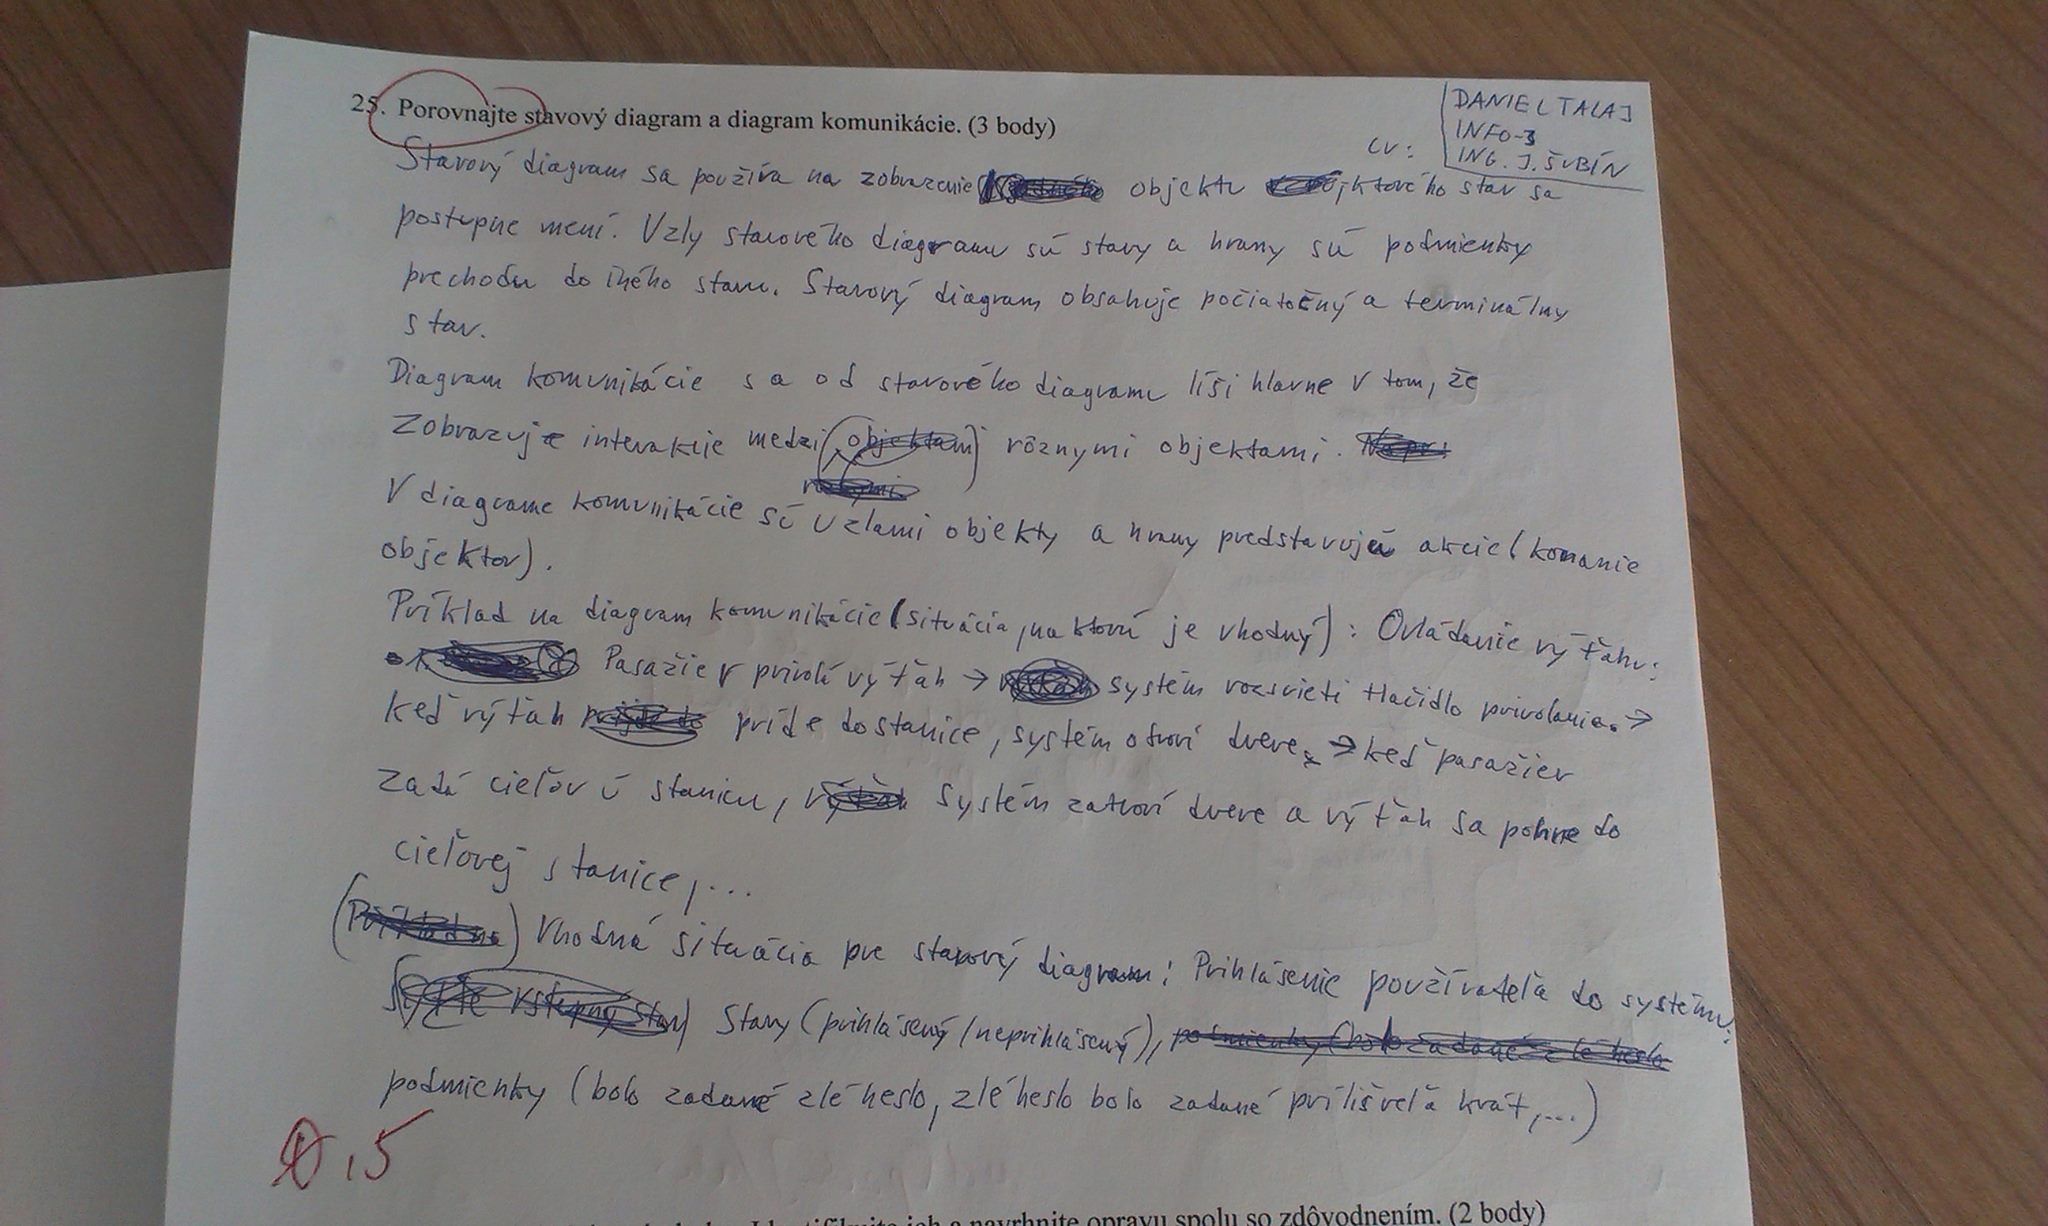 25. Porovnajte stavový diagram a diagram komunikácie. (3 body)
DANIEL TALAJ
INFO-3
CV: ING. J. ŠUBÍN
Stavový diagram sa používa na zobrazenie objektu ktorého stav sa
postupne mení. Vzly stavového diagramu sú stavy a hrany sú podmienky
prechodu do iného stavu. Stavový diagram obsahuje počiatočný a terminálny
stav.
Diagram komunikácie sa od stavového diagramu líši hlavne v tom, že
zobrazuje interakcie medzi (objektami) rôznymi objektami. Napr:
V diagrame komunikácie sú uzlami objekty a hrany predstavujú akcie (konanie
objektov).
Príklad na diagram komunikácie (situácia, na ktorú je vhodný): Ovládanie výťahu:
Pasažier privolá výťah → systém rozsvieti tlačidlo privolania. →
keď výťah príde do stanice, systém otvorí dvere, → keď pasažier
zadá cieľovú stanicu, výťah systém zatvorí dvere a výťah sa pohne do
cieľovej stanice,...
(Príklad na) Vhodná situácia pre stavový diagram: Prihlásenie používateľa do systému:
vstupný stav) Stavy (prihlásený/neprihlásený), podmienky (bolo zadané zlé heslo
podmienky (bolo zadané zlé heslo, zlé heslo bolo zadané príliš veľa krát,...)
,5
Identifikujte ich a navrhnite opravu spolu so zdôvodnením. (2 body)